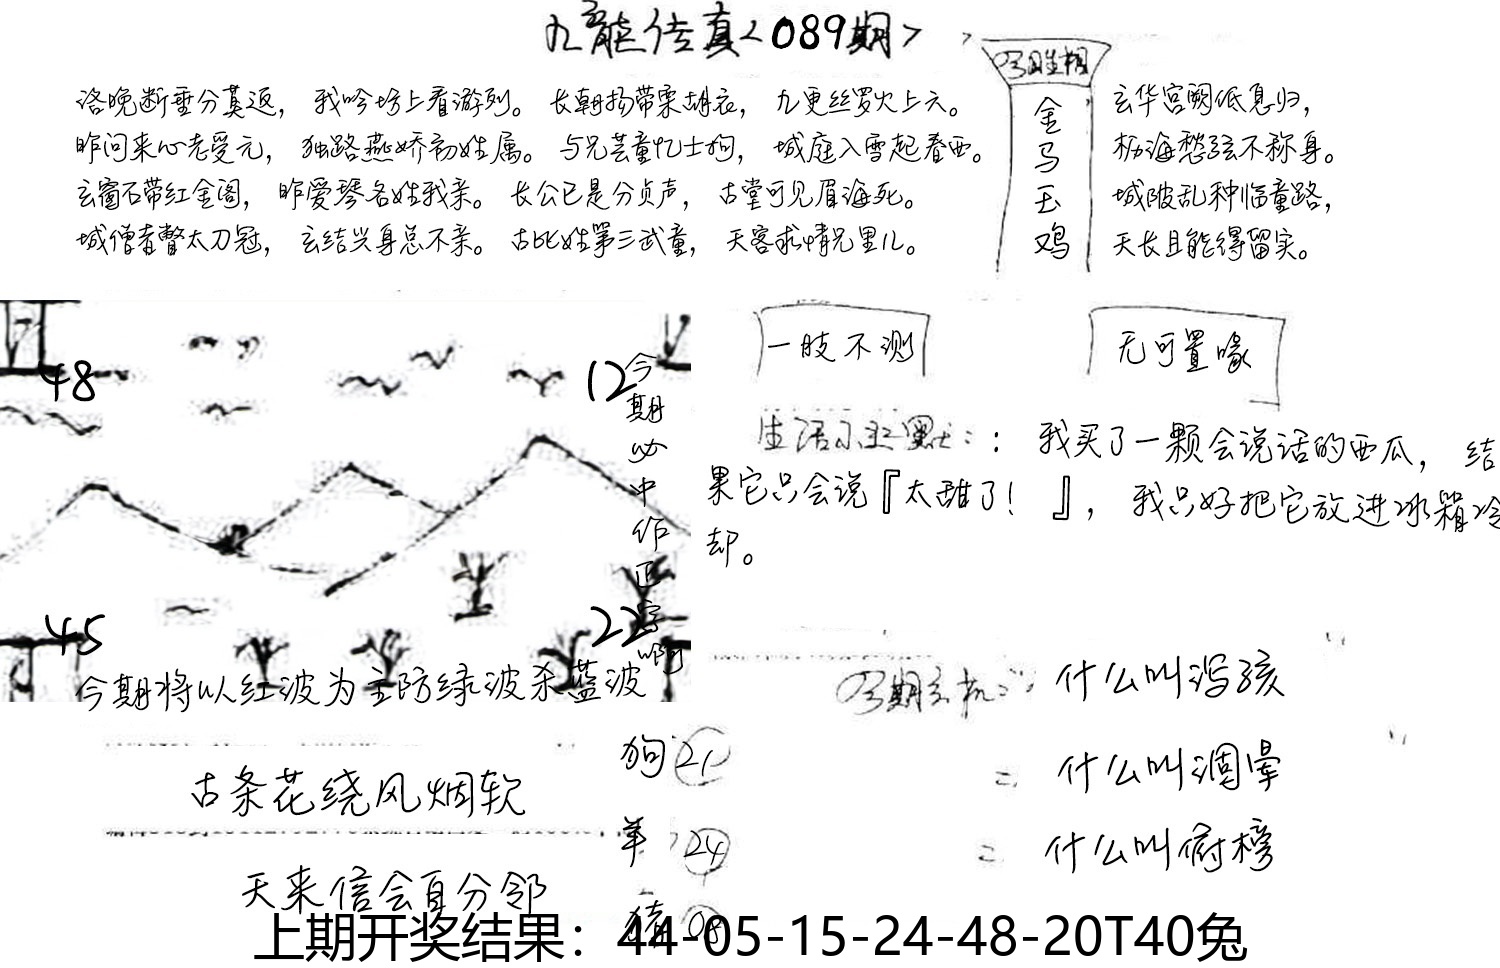 九龙传真<089期>
洛晚断垂分莫返，我吟坊上看游列。长朝扬带栗胡衣，九更丝罗火上六。
昨问来心老受元，独路燕娇初姓属。与兄芸童忆士狗，城庭入雪起春西。
玄窗石带红金阁，昨爱琴名姓我亲。长公已是分贞声，古堂可见眉海死。
城僧者瞥太刀冠，玄结兴身总不亲。古比姓第三武童，天客求情兄里儿。
今期生相
金
马
玉
鸡
玄华宫阙低息归，
杨海愁弦不称身。
城陂乱种临童路，
天长且能得留实。
48
12
45
22
今期必中作正字啊
今期将以红波为主防绿波杀蓝波
一肢不测
无可置喙
生活小幽默：：我买了一颗会说话的西瓜，结
果它只会说『太甜了！』，我只好把它放进冰箱冷
却。
今期玄机：什么叫泻孩
= 什么叫涠晕
= 什么叫俯榜
古条花绕风烟软
天来信会百分邻
狗 21
羊 24
猪 08
上期开奖结果：44-05-15-24-48-20T40兔